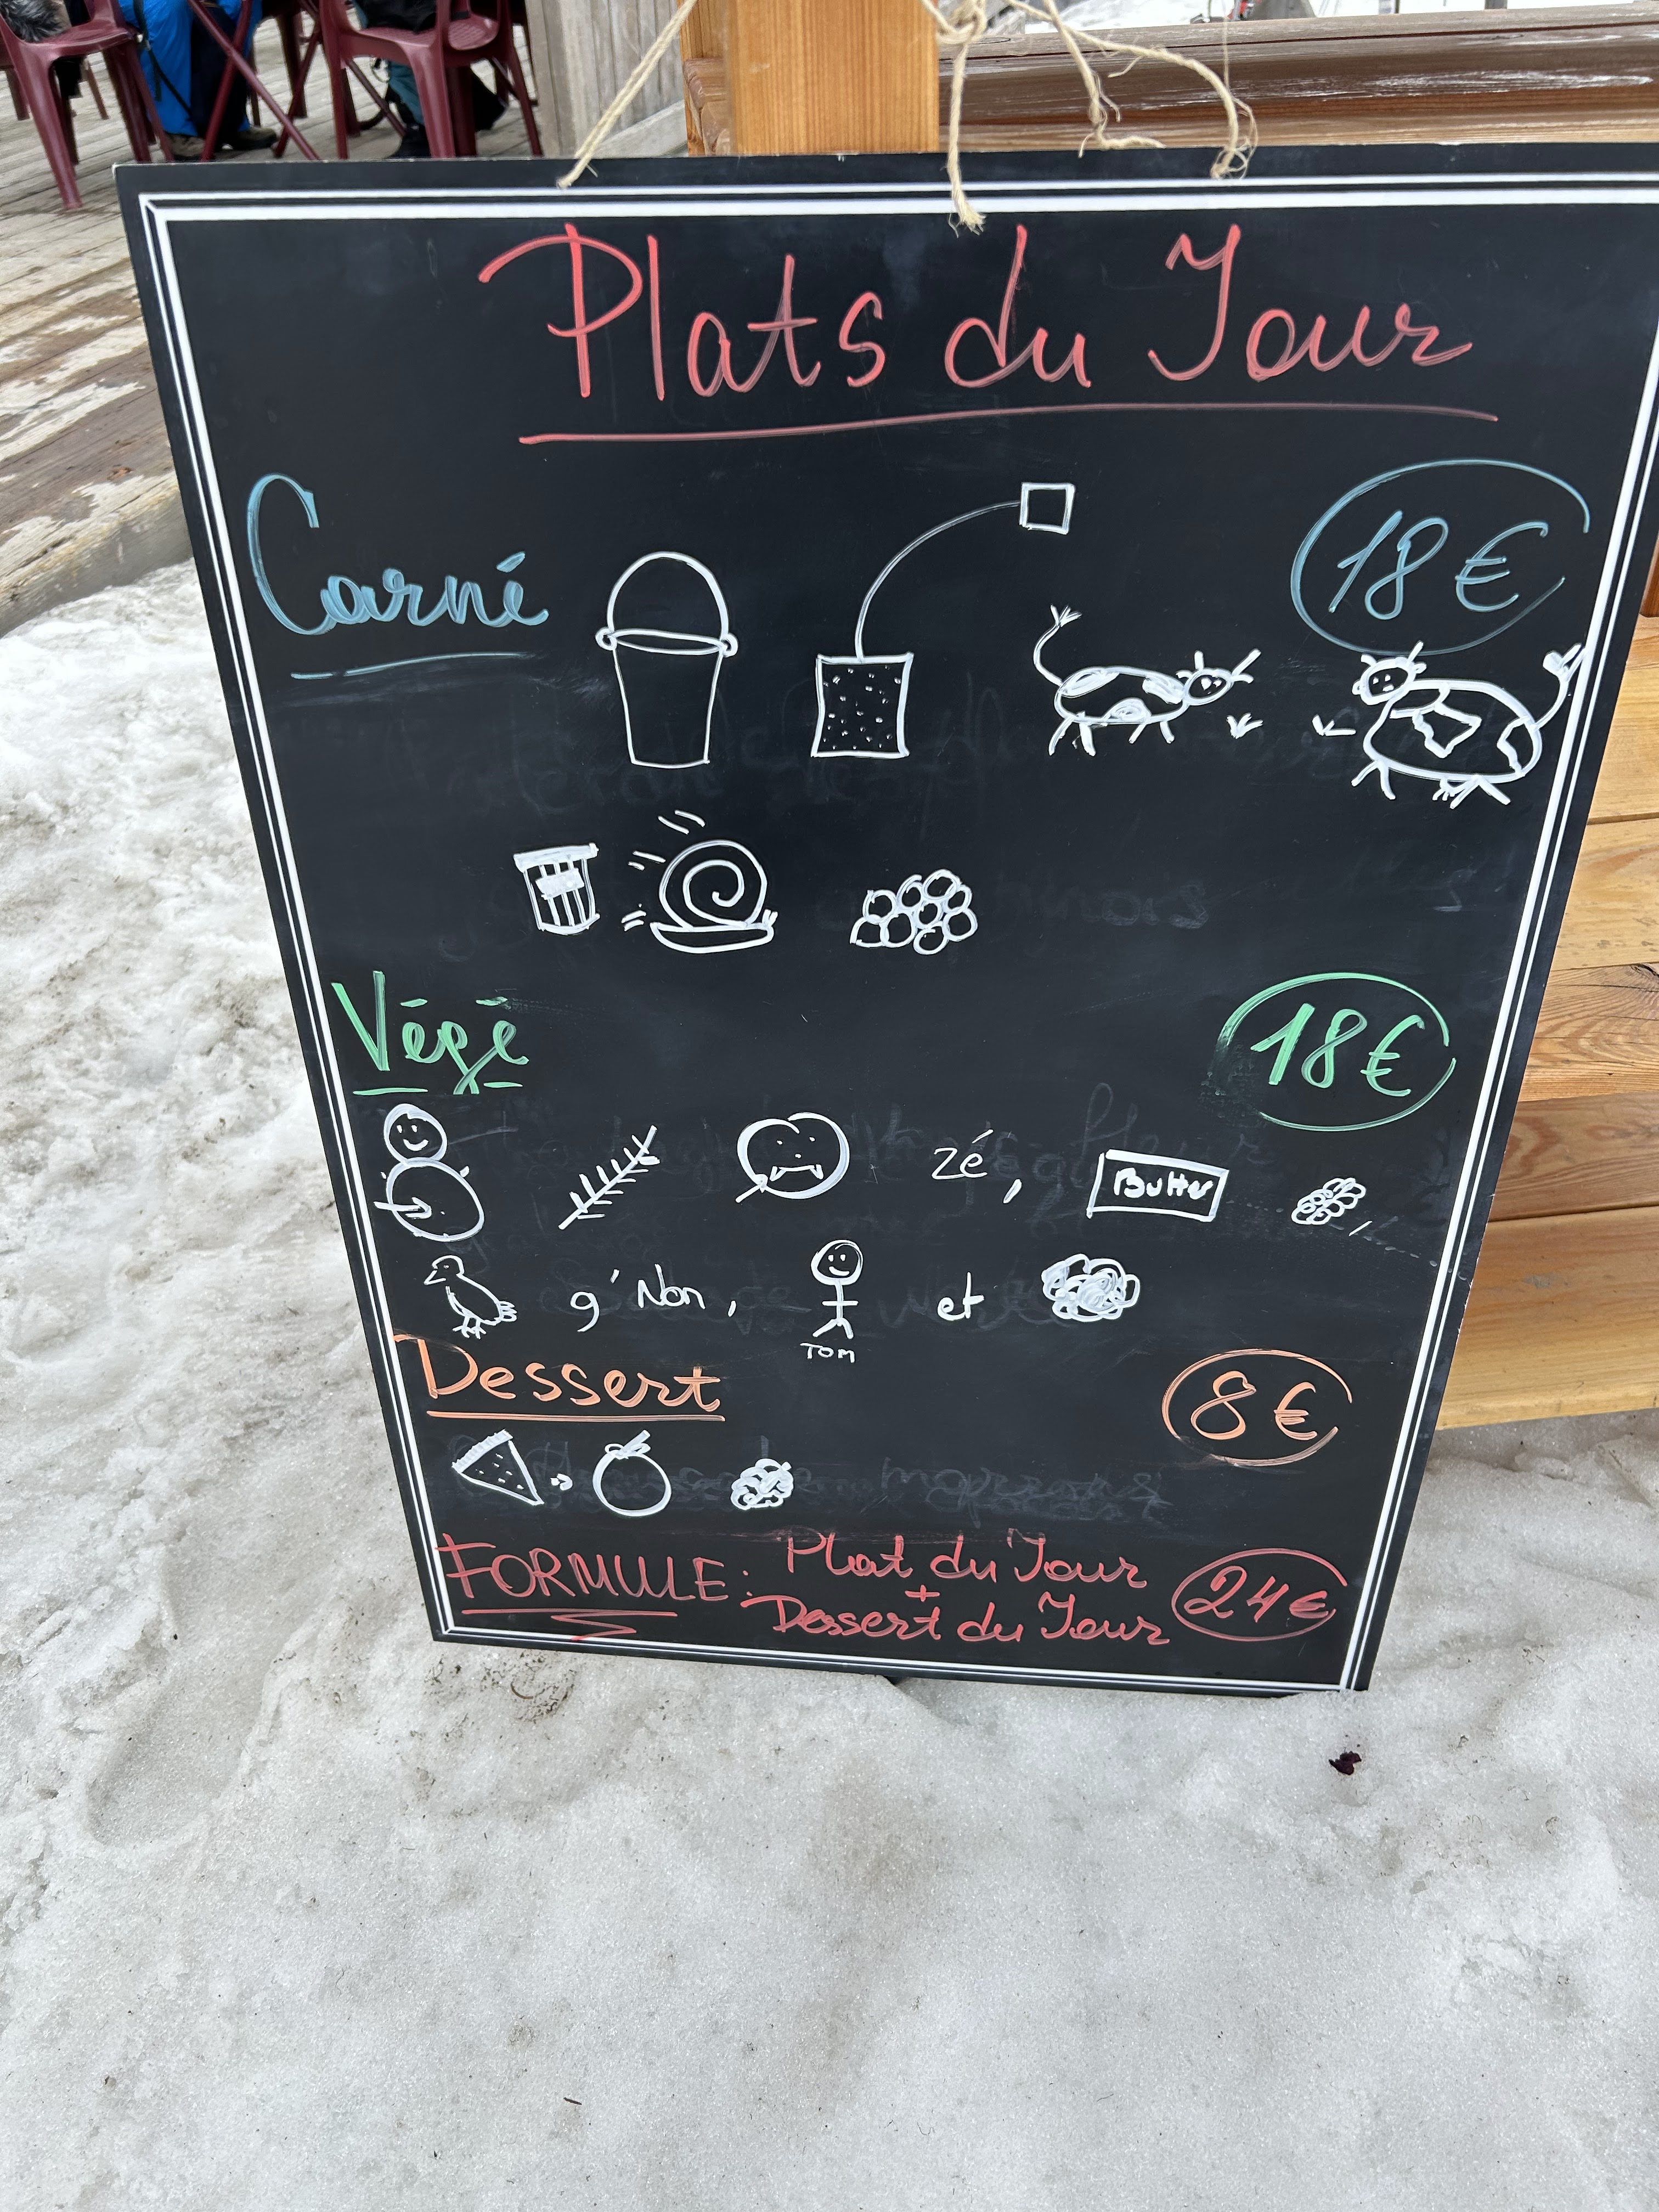 Plats du Jour
Carné
18 €
Végé
18 €
zé,
Butter
g'Non,
et
TOM
Dessert
8 €
FORMULE: Plat du Jour
+
Dessert du Jour
24 €